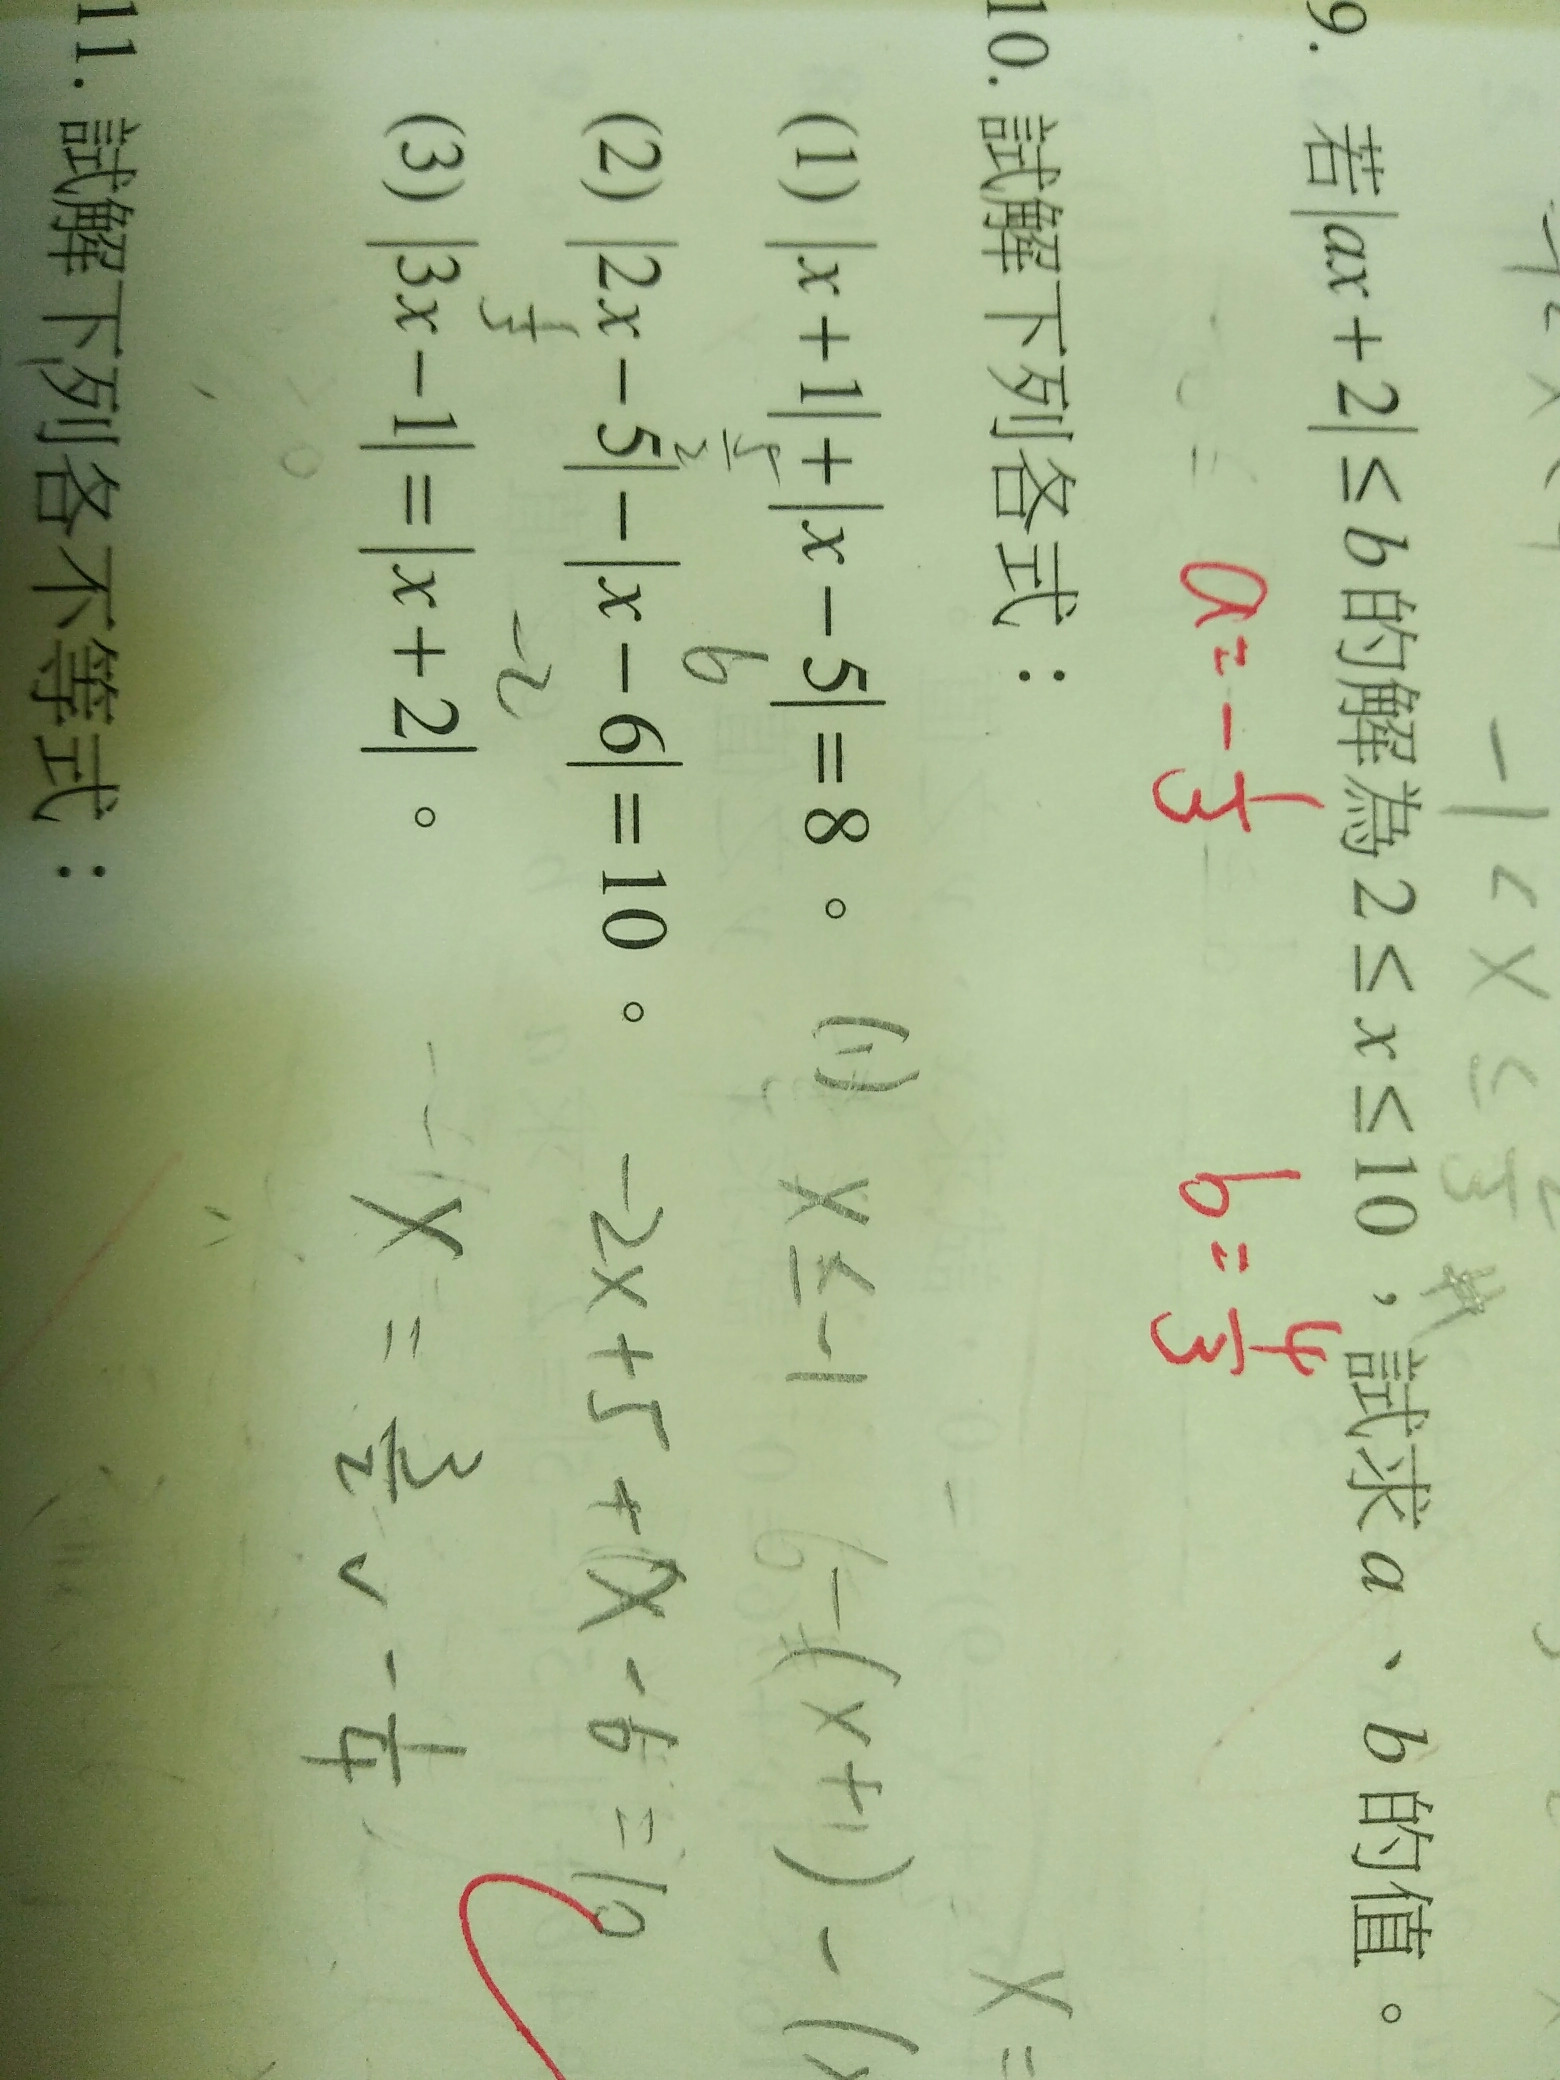 -1 < x ≤ 2/3 #
9. 若|ax+2|≤b的解為2≤x≤10，試求a、b的值。
a=-1/3 b=4/3
10. 試解下列各式：
x=
(1) |x+1|+|x-5|=8。 (1) x≤-1 -(x+1)-(x
5/2 6
(2) |2x-5|-|x-6|=10。 -2x+5+x-6=10
1/3 -2
(3) |3x-1|=|x+2|。 x=3/2 v -1/4
11. 試解下列各不等式：